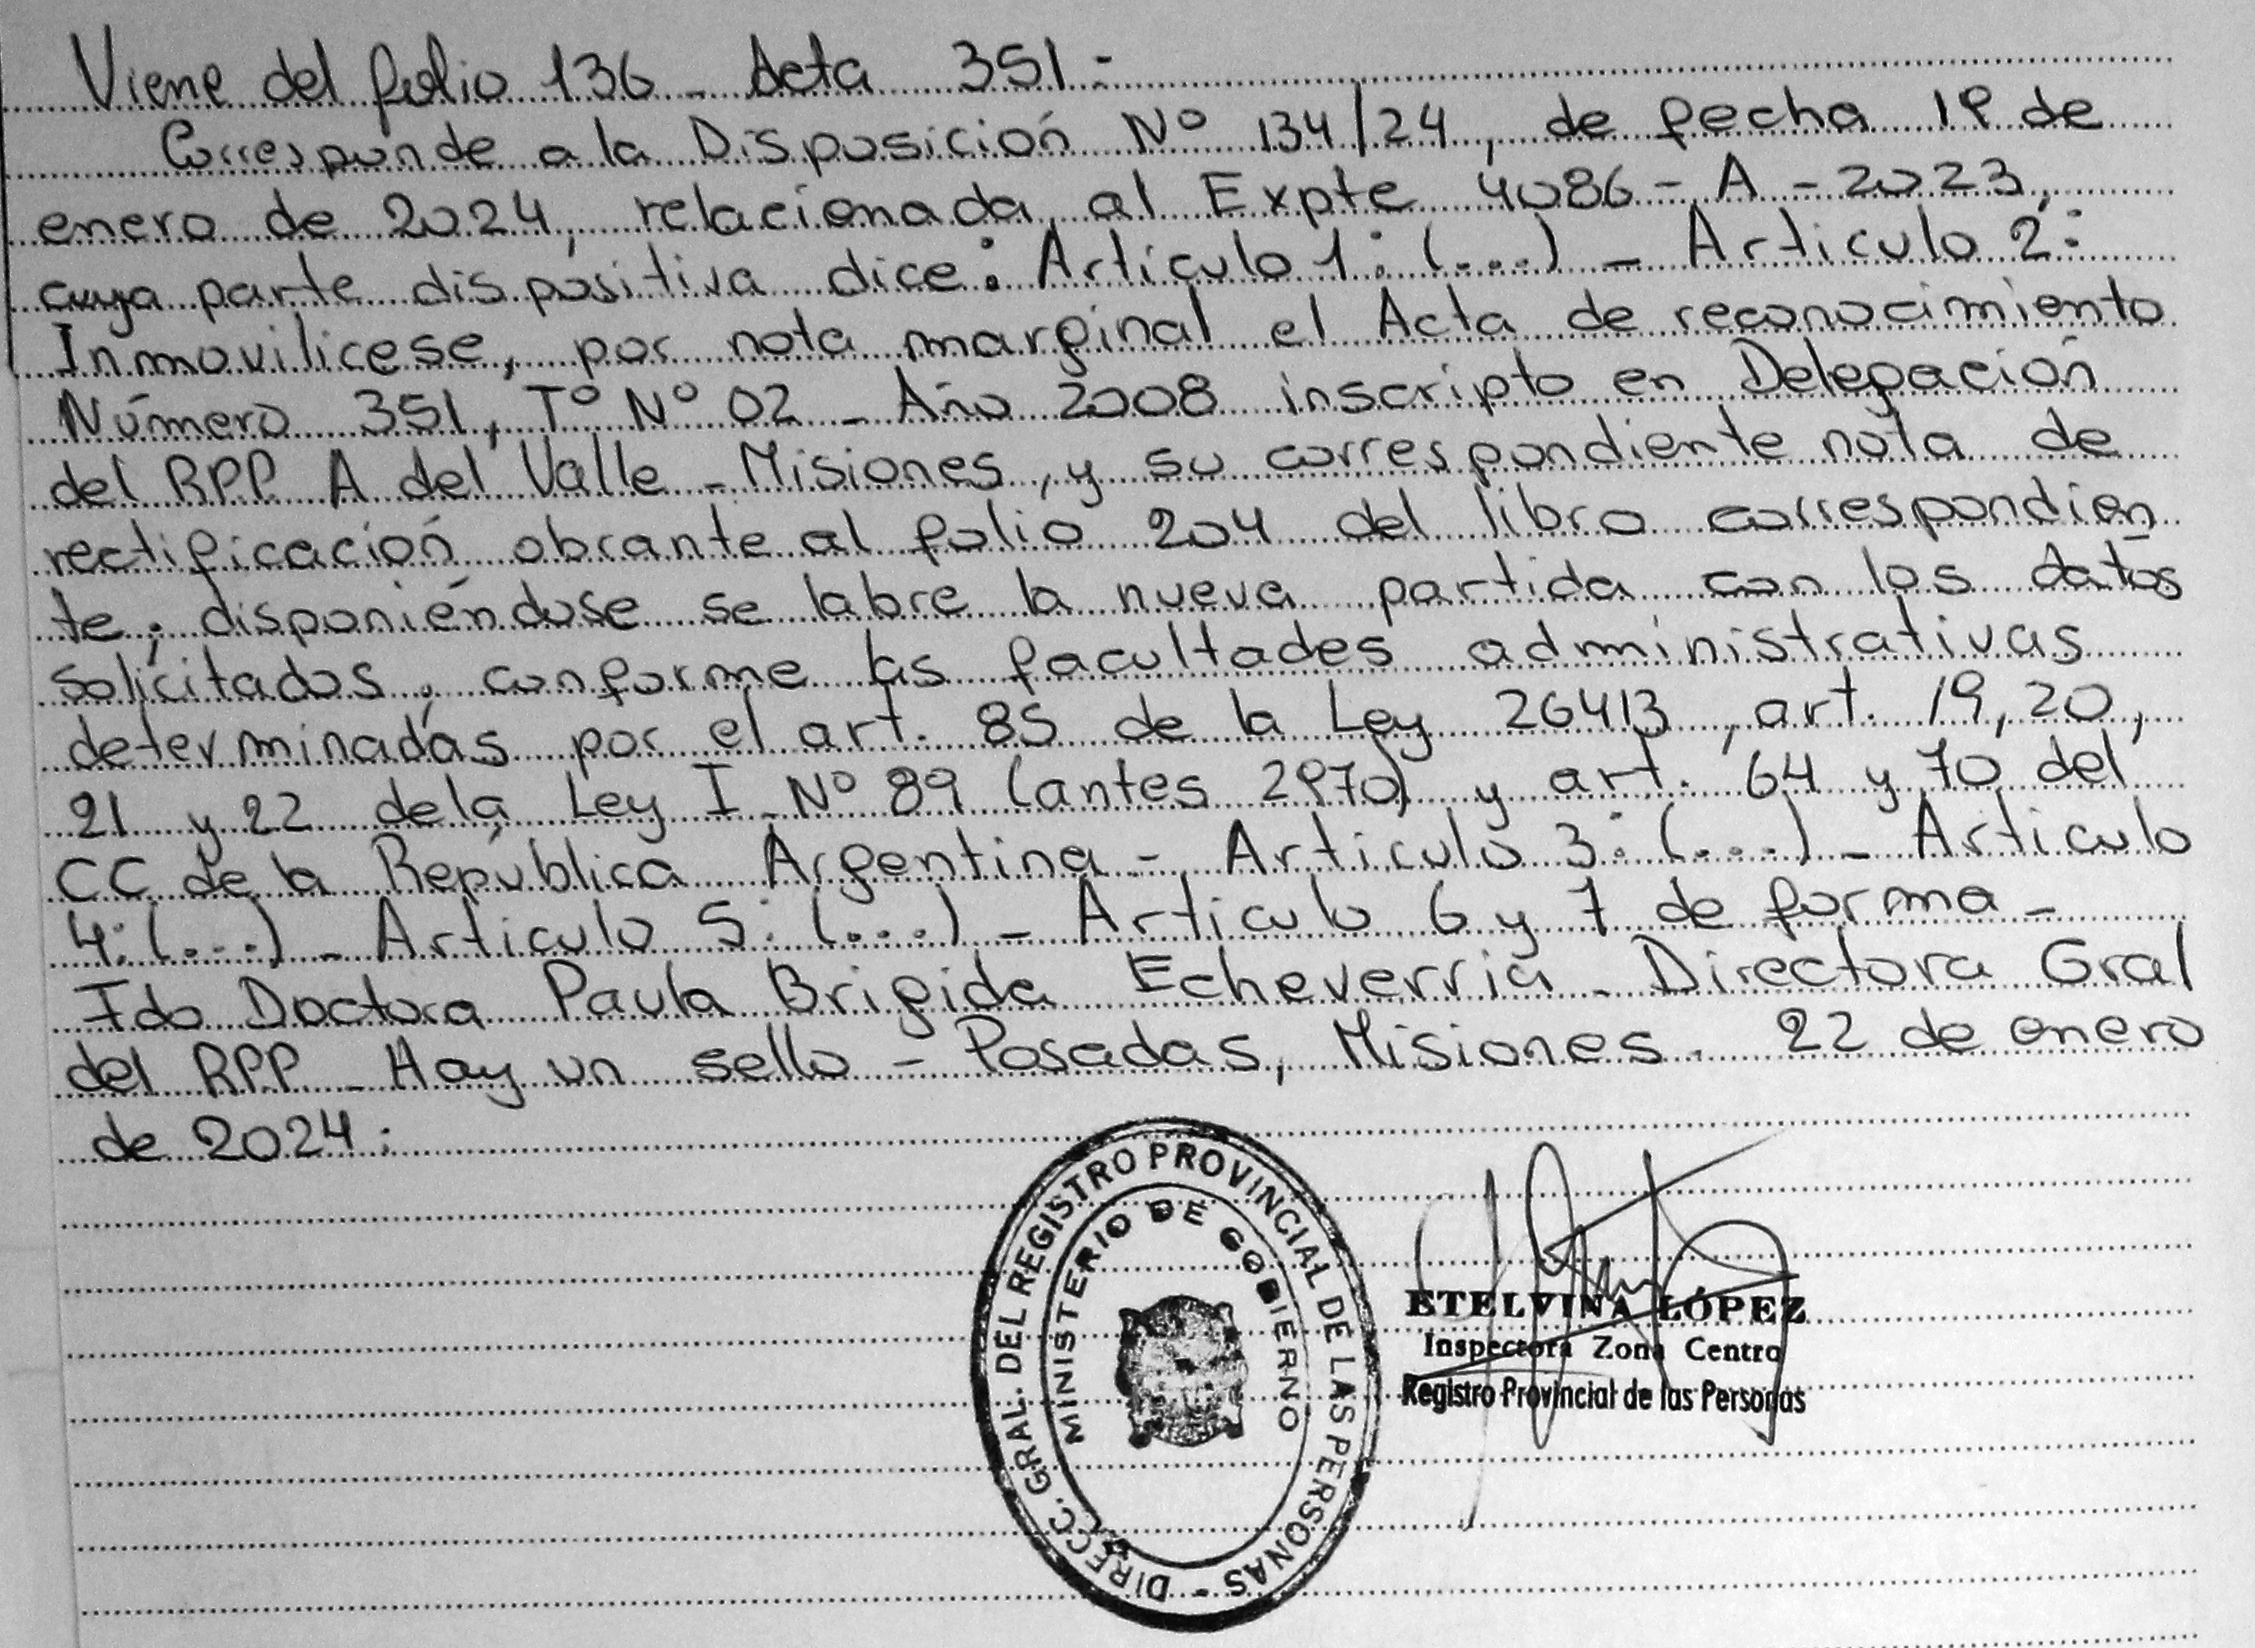 Viene del folio 136 - Acta 351 -
Corresponde a la Disposición Nº 134/24, de fecha 19 de
enero de 2024, relacionada al Expte 4086 - A - 2023,
cuya parte dispositiva dice: Artículo 1: (...) - Artículo 2:
Inmovilicese, por nota marginal el Acta de reconocimiento
Número 351, Tº Nº 02 - Año 2008 inscripto en Delegación
del RPP A del Valle - Misiones, y su correspondiente nota de
rectificación obrante al folio 204 del libro correspondien
te, disponiéndose se labre la nueva partida con los datos
solicitados, conforme las facultades administrativas
determinadas por el art. 85 de la Ley 26413, art. 19, 20,
21 y 22 de la Ley I - Nº 89 (antes 2970) y art. 64 y 70 del
CC de la República Argentina - Artículo 3: (...) - Artículo
4: (...) - Artículo 5: (...) - Artículo 6 y 7 de forma -
Fdo Doctora Paula Brigida Echeverria - Directora Gral
del RPP - Hay un sello - Posadas, Misiones - 22 de enero
de 2024:
DIRECC. GRAL. DEL REGISTRO PROVINCIAL DE LAS PERSONAS -
MINISTERIO DE GOBIERNO
ETELVINA LÓPEZ
Inspectora Zona Centro
Registro Provincial de las Personas